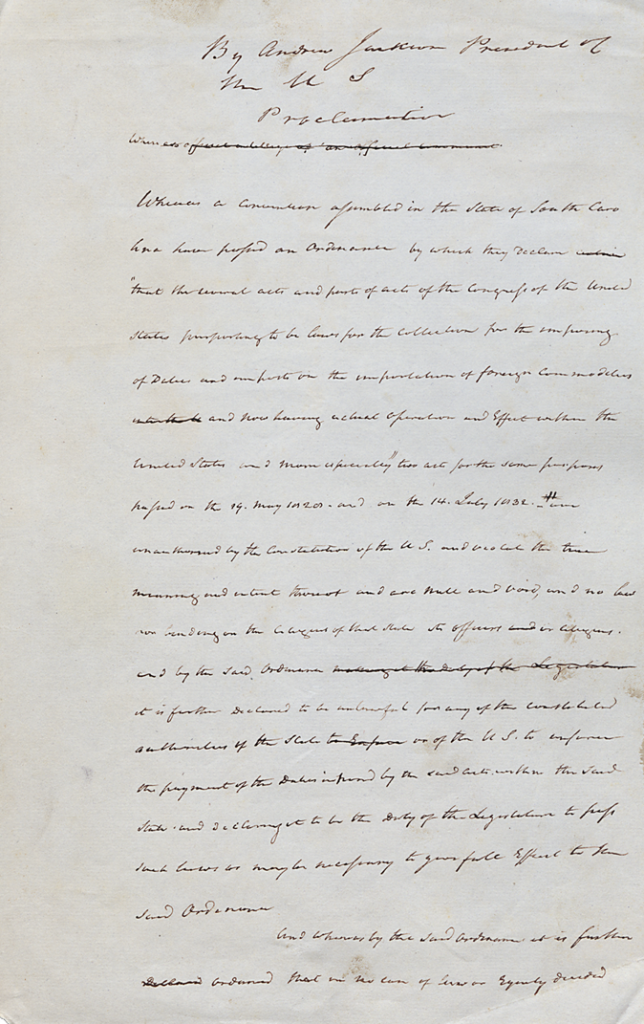 By Andrew Jackson President of
the U S
Proclamation
Whereas
Whereas a Convention assembled in the State of South Caro
lina have passed an Ordinance by which they declare
"that the several acts and parts of acts of the Congress of the United
States purporting to be laws for the Collection for the imposing
of Duties and imposts on the importation of foreign Commodities
and now having actual operation and Effect within the
United States and more especially" two acts for the same purposes
passed on the 19. May 1828. and on the 14. July 1832. "are
unauthorised by the Constitution of the U.S. and violate the true
meaning and intent thereof and are Null and Void, and no law
nor binding on the Citizens of that State its officers and or Citizens.
and by the said Ordinance making it the duty of the Legislature
it is further Declared to be unlawful for any of the constituted
authorities of the State to Enforce or of the U.S. to enforce
the payment of the Duties imposed by the said acts within the said
State and declaring it to be the Duty of the Legislature to pass
such laws as may be necessary to give full Effect to the
said Ordinance
And whereas by the said Ordinance it is further
Declared ordained that in no case of law or Equity decided